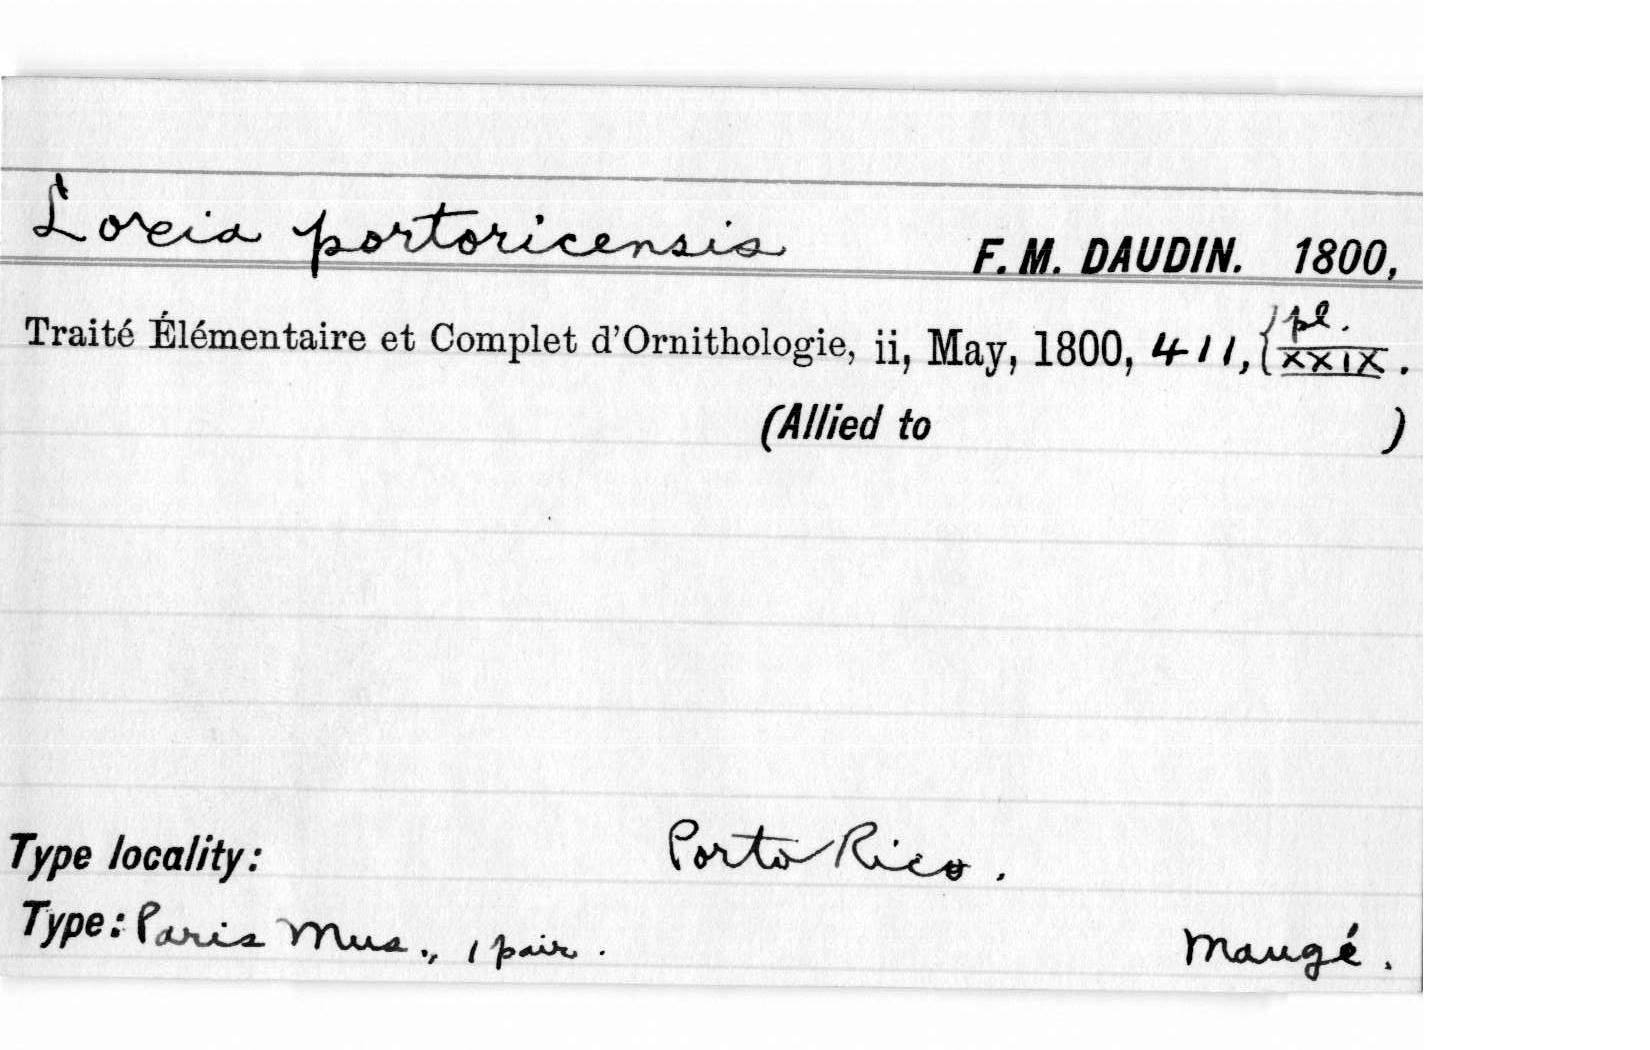 Loxia portoricensis F. M. DAUDIN. 1800,
Traité Élémentaire et Complet d'Ornithologie, ii, May, 1800, 411, { pl. XXIX.
(Allied to )
Type locality: Porto Rico.
Type: Paris Mus., 1 pair. Maugé.